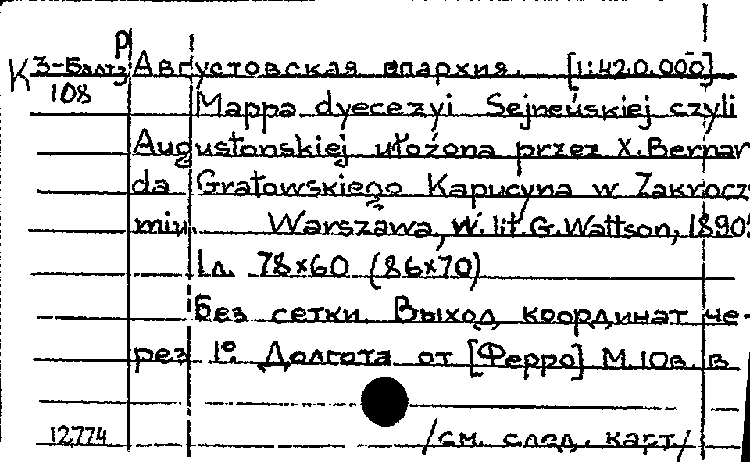 р
К 3-Балтэ Августовская епархия. [1:420.000]
108 Mappa dyecezyi Sejneńskiej czyli
Augustowskiej ułożona przez X. Bernar
da Gratowskiego Kapucyna w Zakroczy
miu. Warszawa, w. lit. G. Wattson, 1890
1л. 78×60 (86×70)
Без сетки. Выход координат че-
рез 1°. Долгота от [Ферро] М. 10в. в
12774 /см. след. карт./